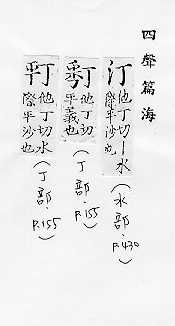 四聲篇海
汀
他丁切丨水
際平沙也
(水部.P.430)
他丁切
平義也
(丁部.P.155)
他丁切水
際平沙也
(丁部.P.155)